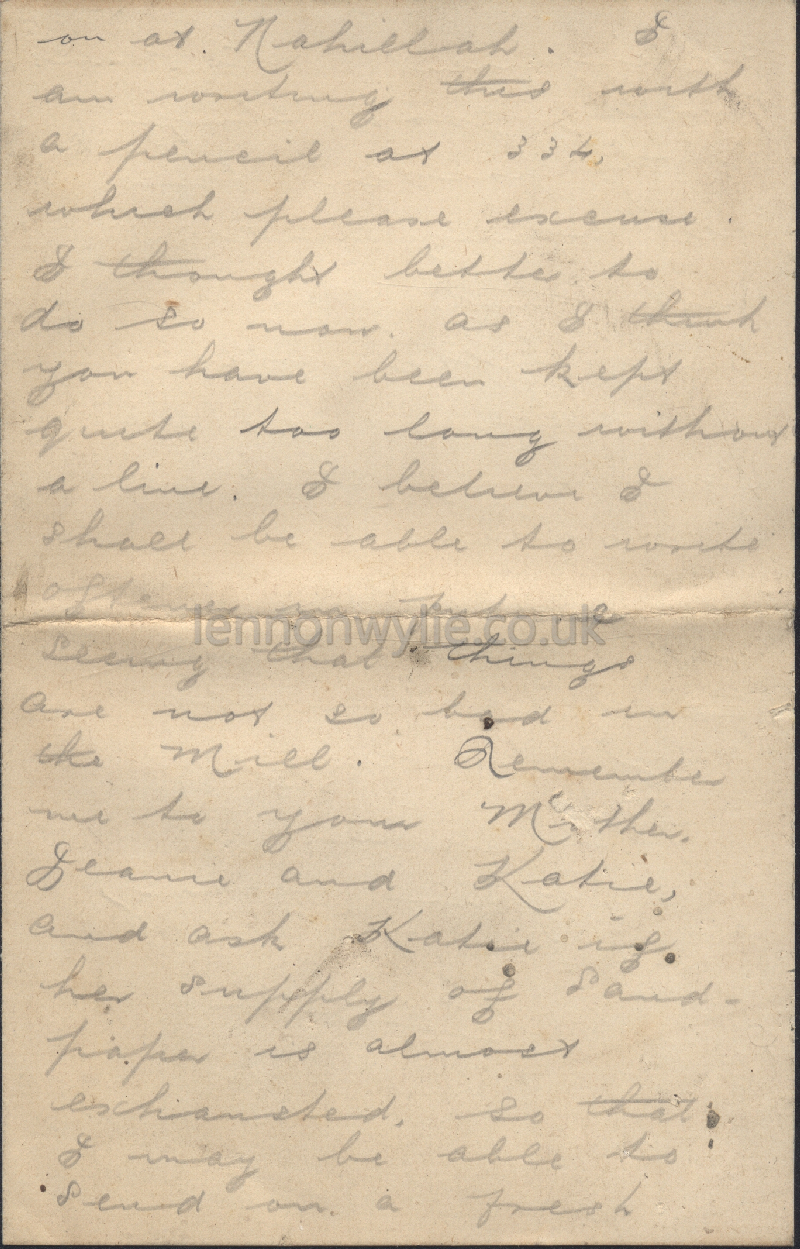 on at Rahillah. I
am writing this with
a pencil at 334,
which please excuse.
I thought better to
do so now. as I think
you have been kept
quite too long without
a line. I believe I
shall be able to write
oftener in future
lennonwylie.co.uk
seeing that things
are not so bad in
the Mill. Remember
me to your Mother.
Jeanie and Katie,
and ask Katie if
her supply of Sand-
paper is almost
exhausted, so that
I may be able to
send on a fresh